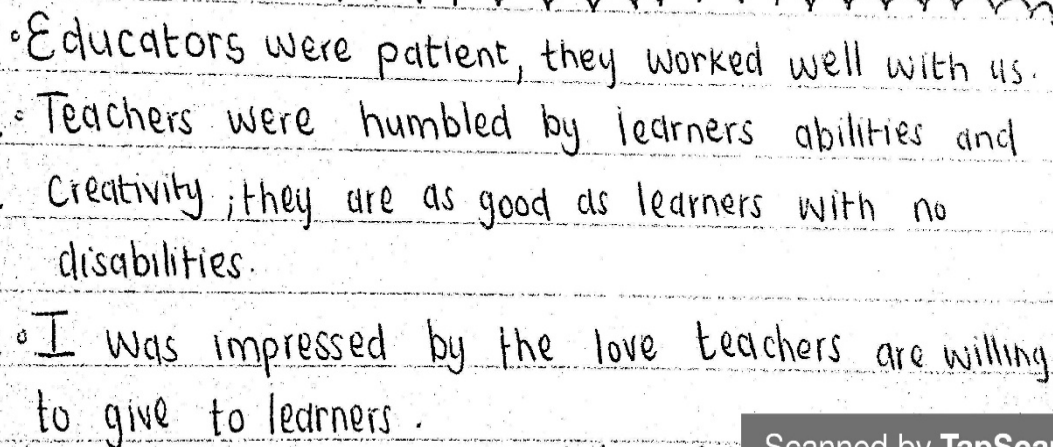 • Educators were patient, they worked well with us.
• Teachers were humbled by learners abilities and
creativity ; they are as good as learners with no
disabilities.
• I was impressed by the love teachers are willing
to give to learners.
Scanned by